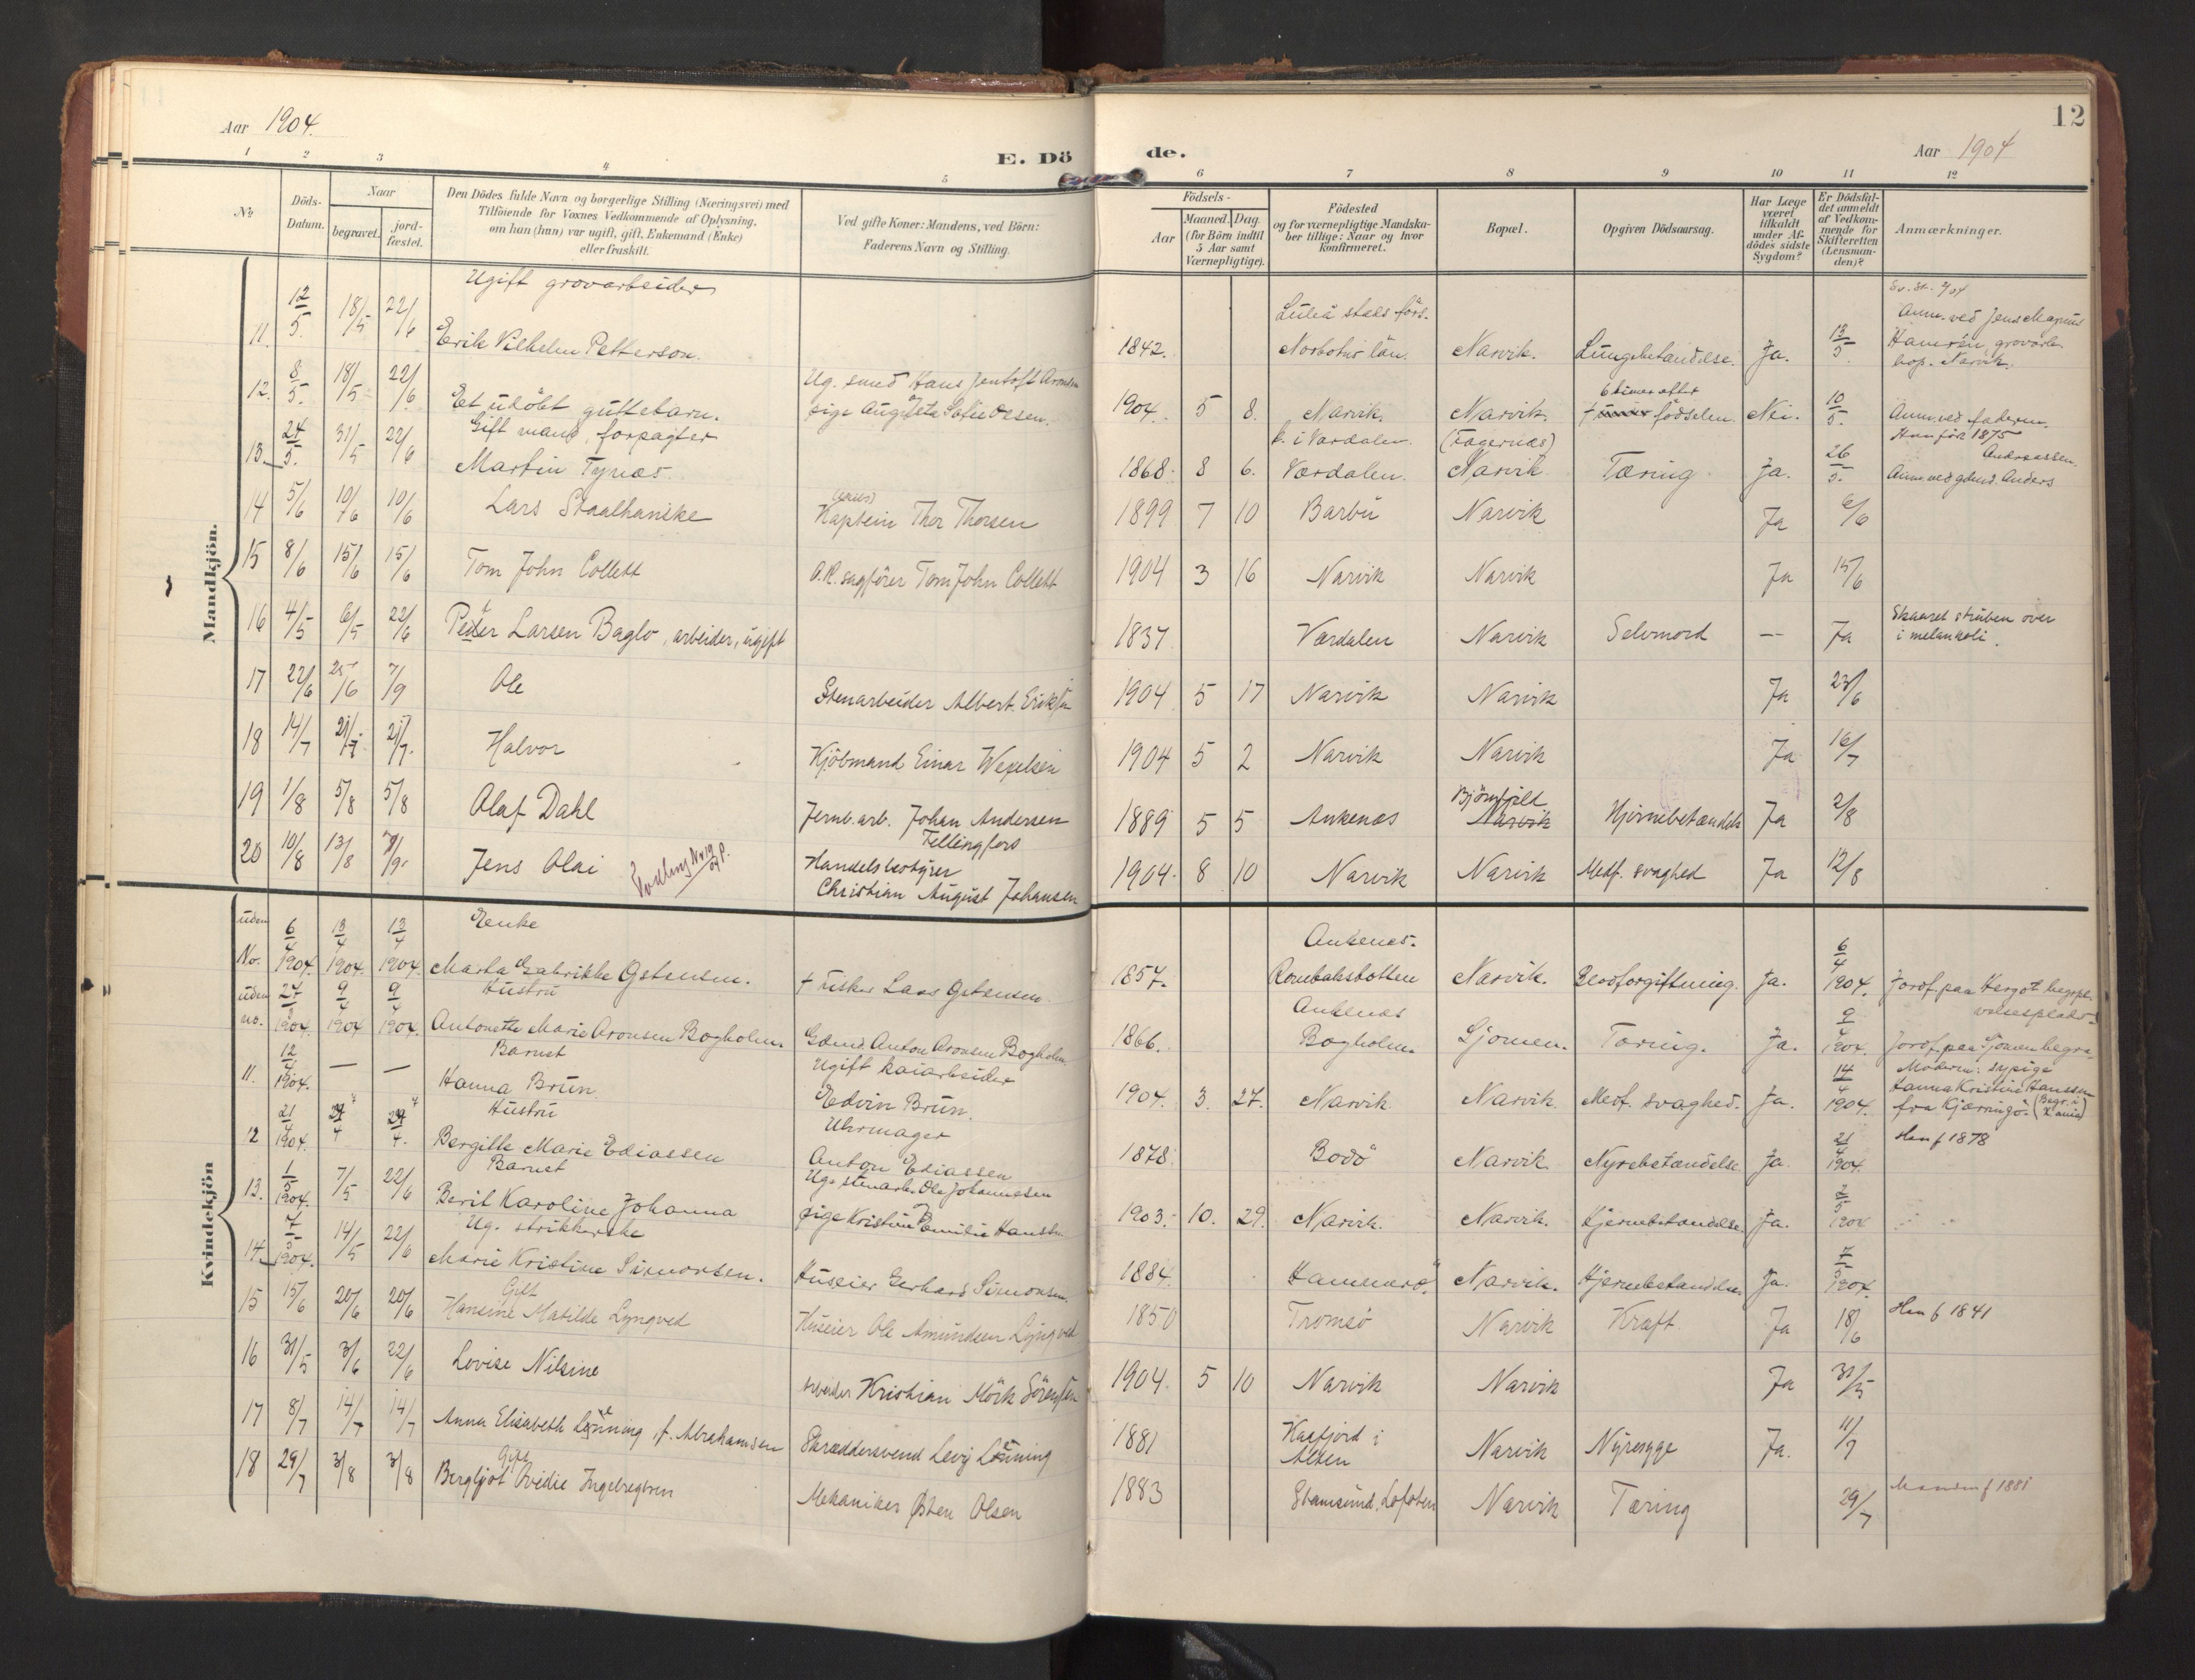 Aar 1904.
E. Dö
de.
Aar 1904
12
1 2 3 4 5 6 7 8 9 10 11 12
No
Döds-Datum.
Naar
begravet.
jord-fæstet.
Den Dödes fulde Navn og borgerlige Stilling (Næringsvei) med
Tilföiende for Voxnes Vedkommende af Oplysning,
om han (hun) var ugift, gift, Enkemand (Enke)
eller fraskilt.
Ved gifte Koner: Mandens, ved Börn:
Faderens Navn og Stilling.
Födsels-
Aar
Maaned. Dag.
(for Börn indtil
5 Aar samt
Værnepligtige).
Födested
og for værnepligtige Mandska-
ber tillige: Naar og hvor
konfirmeret.
Bopæl.
Opgiven Dödsaarsag.
Har Læge
været
tilkaldt
under Af-
dödes sidste
Sygdom?
Er Dödsfal-
det anmeldt
af Vedkom-
mende for
Skifteretten
(Lensman-
den)?
Anmærkninger.
Mandkjön.
11. 12/5. 18/5 22/6 Ugift grovarbeider
Erik Vilhelm Petterson. 1842. Luleå stads förs.
Norbotns län. Narvik. Lungebetændelse. Ja. 13/5 Anm. ved Jens Magnus
grovarb.
bop. Narvik.
12. 8/5. 18/5 22/6 Et udöbt guttebarn. Ug. smed Hans Jentoft Aronsen
pige Augusta Sofie Olsen. 1904. 5 8. Narvik. Narvik. 6 timer efter
† under födselen. Nei. 10/5. Anm. ved faderen.
13. 24/5. 31/5 22/6 Gift mand, forpagter
Martin Tynæs. 1868. 8 6. k. i Værdalen.
Værdalen. (Fagernæs)
Narvik. Tæring. Ja. 26/5. Hun föd 1875
Andreassen.
Anm. ved gdmd. Anders
14 5/6 10/6 10/6 Lars Staalhanske Kaptein Thor Thorsen 1899 7 10 Barbu Narvik Ja 6/6
15 8/6 15/6 15/6 Tom John Collett O.R. sagförer Tom John Collett 1904 3 16 Narvik Narvik Ja 15/6
16 4/5 6/5 22/6 Peder Larsen Baglo, arbeider, ugift 1837 Værdalen Narvik Selvmord — Ja Skaaret struben over
i melankoli.
17 22/6 25/6 7/9 Ole Stenarbeider Albert Eriksen 1904 5 17 Narvik Narvik Ja 23/6
18 14/7 21/7. 21/7. Halvor Kjöbmand Einar Wexelsen 1904 5 2 Narvik Narvik Ja 16/7
19 1/8 5/8 5/8 Olaf Dahl Jernb.arb. Johan Andersen
Fellingfors 1889 5 5 Ankenes Björnfjell
Narvik Hjernebetændelse Ja 2/8
20 10/8 13/8 Jens Olai Handelsbestyrer
Christian August Johansen 1904. 8 10 Narvik Narvik Medf. svaghed Ja 12/8
Kvindekjön
uden No. 6/4 1904. 13/4 1904. 13/4 1904. Enke
Marta Gabrikke Ostensen. † fisker Lars Ostensen. 1857. Ankenes.
Rombaksbotten Narvik. Blodforgiftning. Ja. 6/4 1904. Jordf. paa Hergot begra-
velsesplads.
uden no. 27/3 1904. 9/4 1904 9/4 1904. Hustru
Antonette Marie Aronsen Bogholm. Gdmd. Anton Aronsen Bogholm 1866. Ankenes
Bogholm. Sjomen. Tæring. Ja. 9/4 1904. Jordf. paa Sjomen begra-
11. 12/4 1904. — — Barnet
Hanna Brun. Ugift kaiarbeider
Edvin Brun. 1904. 3. 27. Narvik. Narvik. Medf. svaghed. Ja. 14/4 1904. Moderen: sypige
Hanna Kristine Hanssen
fra Kjærringö.
12 21/4 1904. 24/4 24/4. Hustru
Bergitte Marie Ediassen Uhrmager
Anton Ediassen 1878. Bodö Narvik. Nyrebetændelse Ja. 21/4 1904. Han f 1878
13. 1/5 1904. 7/5 22/6 Barnet
Beril Karoline Johanna Ug. stenarb. Ole Johannesen
pige Kristine Emilie Hanssen 1903. 10. 29. Narvik. Narvik. Hjernebetændelse Ja. 2/5 1904
14. 7/5 1904. 14/5 22/6 Ug. strikkerske
Marie Kristine Simonsen. Huseier Gerhard Simonsen. 1884. Hammerö. Narvik. Hjernebetændelse Ja. 7/5 1904.
15 15/6 20/6 20/6 Gift
Hansine Matilde Lyngved Huseier Ole Amundsen Lyngved 1850 Tromsö Narvik Kræft Ja 18/6 Han f 1841
16 31/5 3/6 22/6 Lovise Nilsine Arbeider Kristian Mörk Sörensen 1904. 5 10 Narvik Narvik Ja 31/5
17 8/7 14/7 14/7 Anna Elisabeth Lenning, f. Abrahamsen Skræddersvend Levy Lenning 1881 Kaafjord i
Alten Narvik Nyresyge Ja. 11/7
18 29/7 3/8 3/8 Gift
Bergljot Ovedie Ingebregtsen Mekaniker Østen Olsen 1883 Stamsund, Lofoten Narvik Tæring 29/7 Manden f 1881